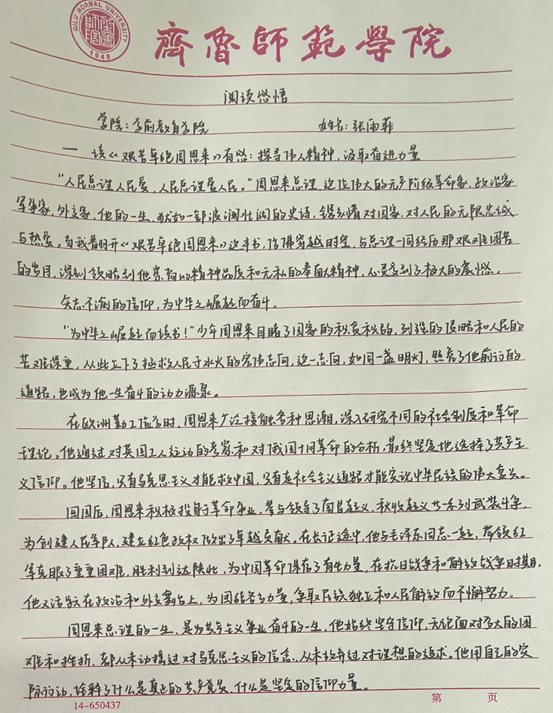 QILU NORMAL UNIVERSITY
1948
齊魯師範學院
阅读感悟
学院：学前教育学院 姓名：张雨菲
一 读《艰苦卓绝周恩来》有感：探寻伟人精神，汲取奋进力量
"人民总理人民爱，人民总理爱人民。"周恩来总理，这位伟大的无产阶级革命家，政治家
军事家，外交家，他的一生，犹如一部波澜壮阔的史诗，镌刻着对国家，对人民的无限忠诚
与热爱。当我翻开《艰苦卓绝周恩来》这本书，仿佛穿越时空，与总理一同经历那艰难困苦
的岁月，深刻领略到他崇高的精神品质和无私的奉献精神，心灵受到了极大的震撼。
矢志不渝的信仰，为中华之崛起而奋斗。
"为中华之崛起而读书！"少年周恩来目睹了国家的积贫积弱，列强的侵略和人民的
苦难深重，从此立下了拯救人民于水火的宏伟志向，这一志向，如同一盏明灯，照亮了他前行的
道路，也成为他一生奋斗的动力源泉。
在欧洲勤工俭学时，周恩来广泛接触各种思潮，深入研究不同的社会制度和革命
理论。他通过对英国工人运动的考察和对俄国十月革命的分析，最终坚定地选择了共产主
义信仰。他坚信，只有马克思主义才能救中国，只有走社会主义道路才能实现中华民族的伟大复兴。
回国后，周恩来积极投身于革命事业，参与领导了南昌起义，秋收起义等一系列武装斗争，
为创建人民军队，建立红色政权做出了卓越贡献。在长征途中，他与毛泽东同志一起，带领红
军克服了重重困难，胜利到达陕北，为中国革命保存了有生力量，在抗日战争和解放战争时期，
他又活跃在政治和外交舞台上，为团结各方力量，争取民族独立和人民解放而不懈努力。
周恩来总理的一生，是为共产主义事业奋斗的一生，他始终坚守信仰，无论面对多大的困
难和挫折，都从未动摇过对马克思主义的信念，从未放弃过对理想的追求。他用自己的实
际行动，诠释了什么是真正的共产党员，什么是坚定的信仰力量。
14-650437 第 页